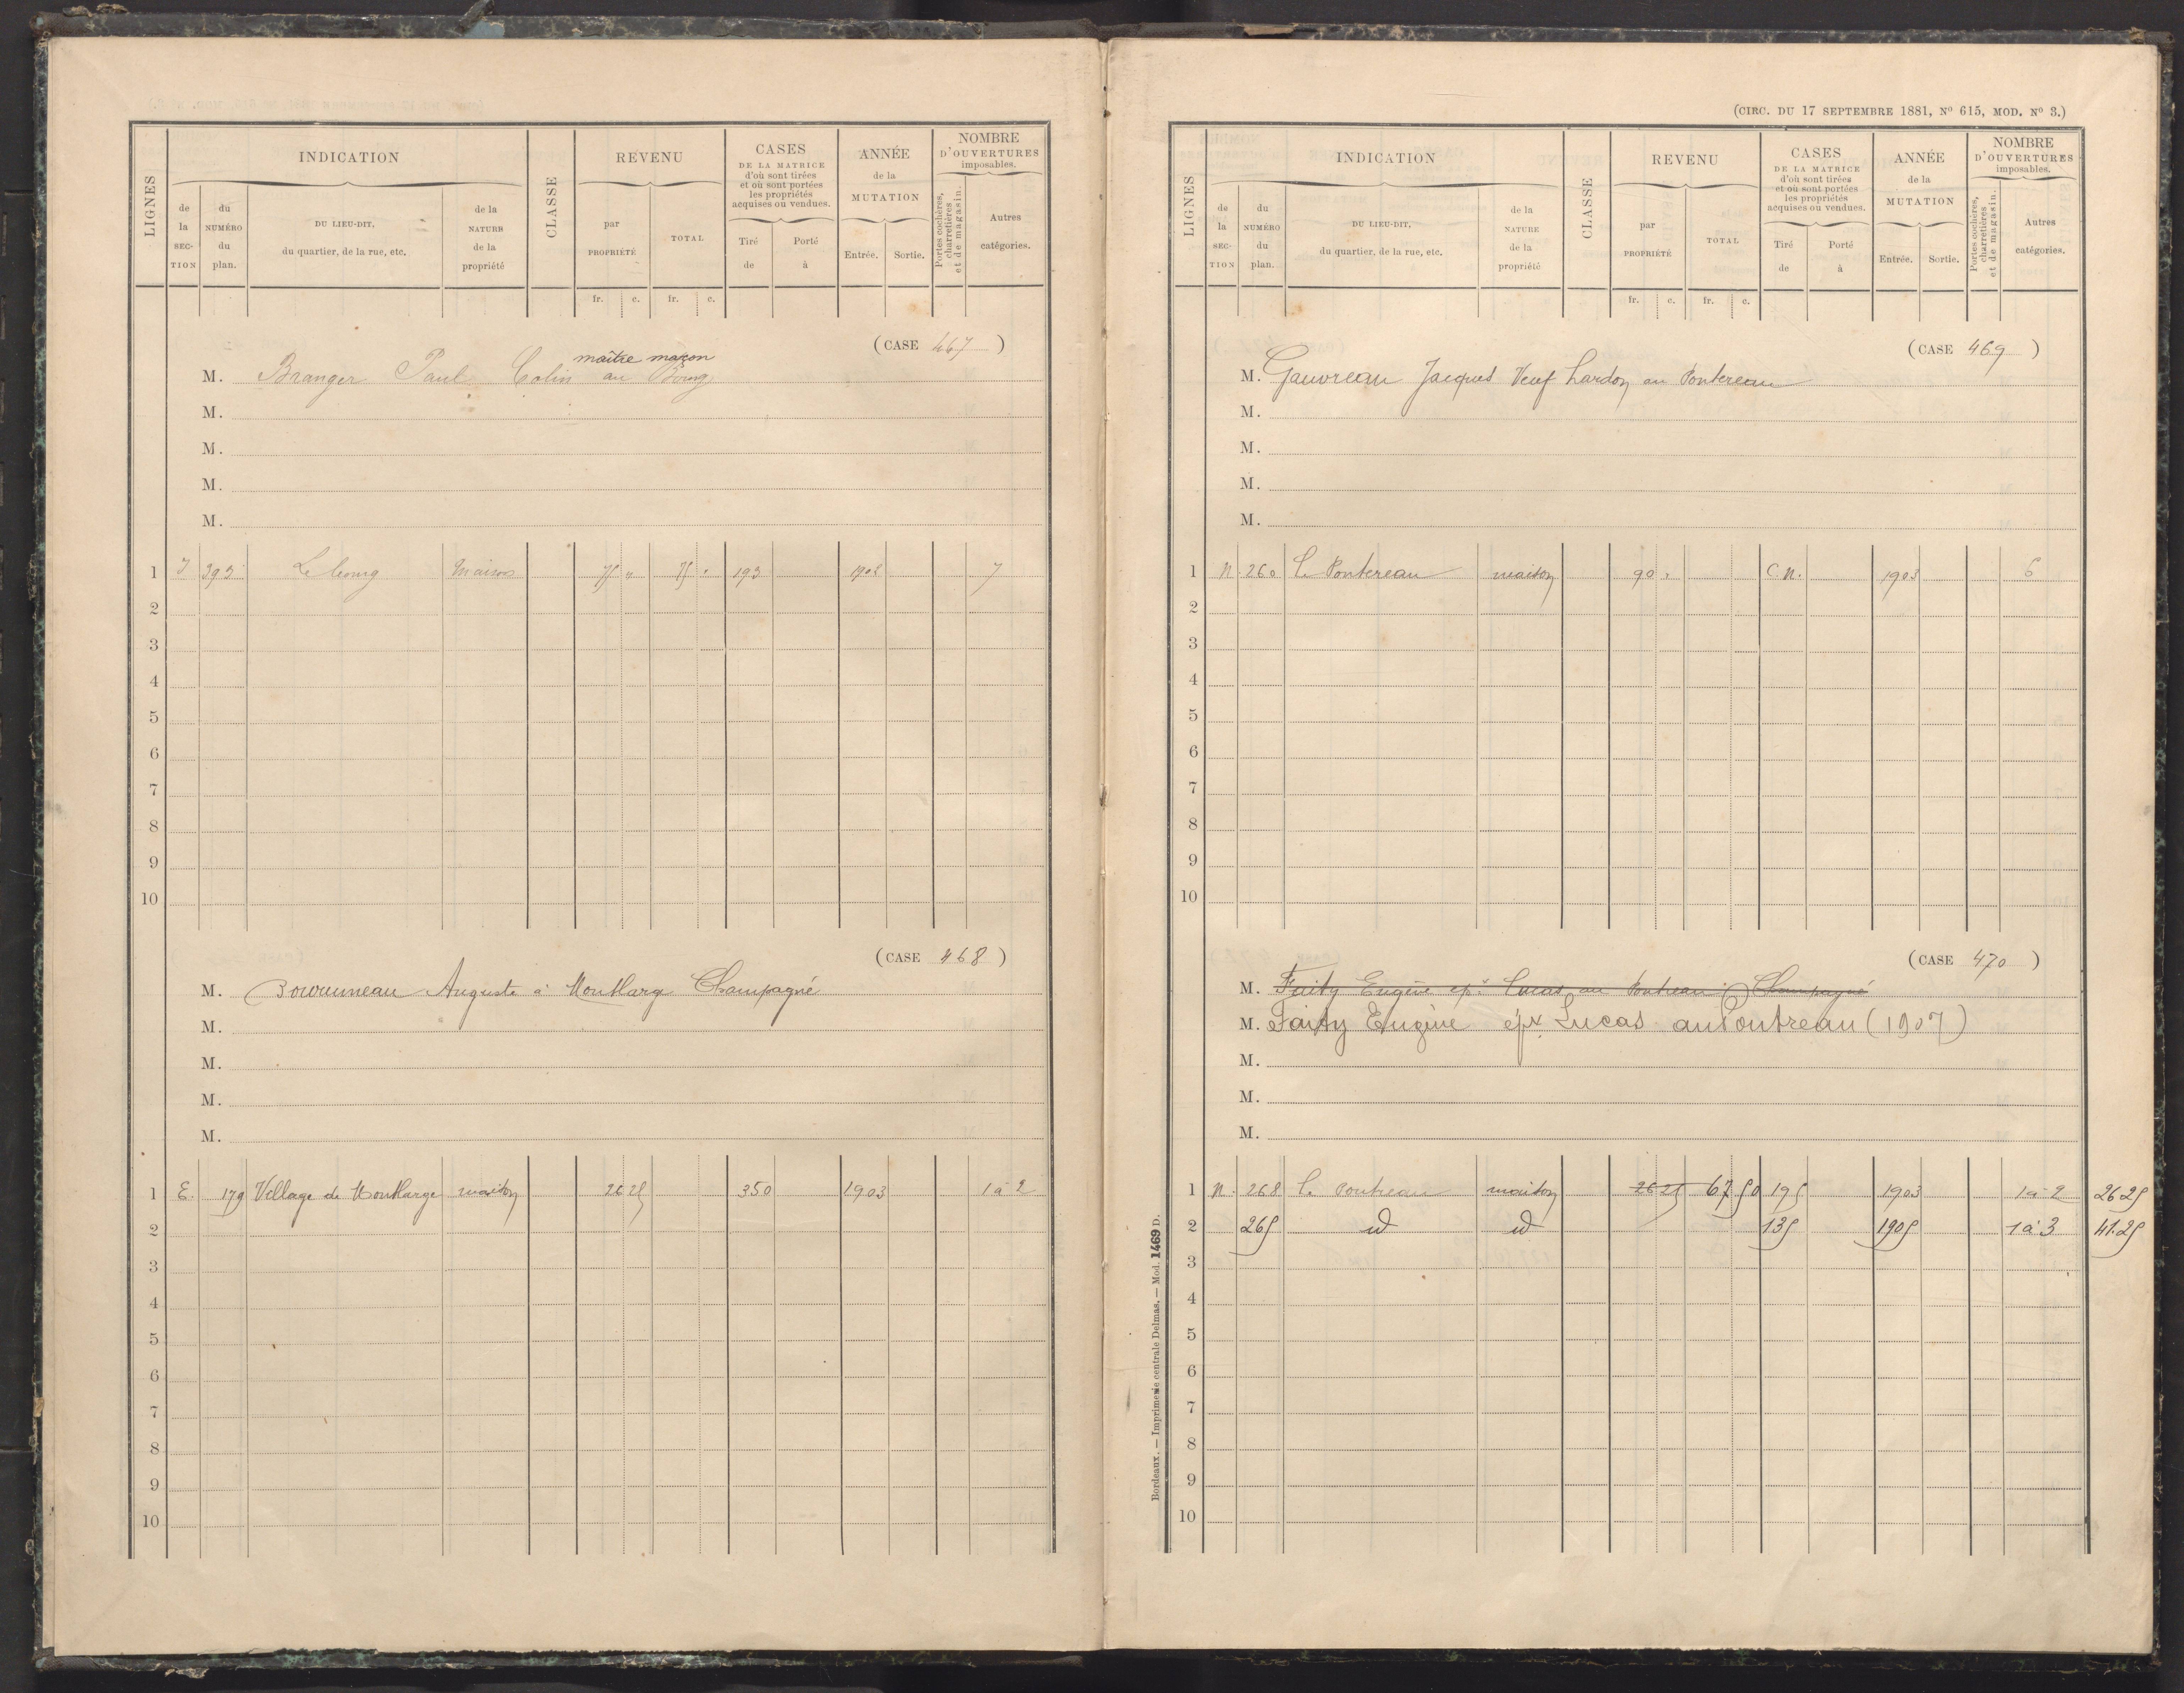 LIGNES
INDICATION
CLASSE
REVENU
CASES
DE LA MATRICE
d'où sont tirées
et où sont portées
les propriétés
acquises ou vendues.
ANNÉE
de la
MUTATION
NOMBRE
D'OUVERTURES
imposables.
de la SECTION
du NUMÉRO du plan.
DU LIEU-DIT,
du quartier, de la rue, etc.
de la NATURE de la propriété
par PROPRIÉTÉ
TOTAL
Tiré de
Porté à
Entrée.
Sortie.
Portes cochères, charretières et de magasin.
Autres catégories.
fr. c. fr. c.
(CASE 467)
maître maçon
M. Branger Paul Colin au Bourg
M.
M.
M.
M.
1 393 Le bourg Maison 75 " 75 " 193 1902 7
2
3
4
5
6
7
8
9
10
(CASE 468)
M. Auguste à Montlarge Champagné
M.
M.
M.
M.
1 E. 179 Village de Montlarge maison 26 25 350 1903 1 à 2
2
3
4
5
6
7
8
9
10
(CIRC. DU 17 SEPTEMBRE 1881, No 615, MOD. No 3.)
LIGNES
INDICATION
CLASSE
REVENU
CASES
DE LA MATRICE
d'où sont tirées
et où sont portées
les propriétés
acquises ou vendues.
ANNÉE
de la
MUTATION
NOMBRE
D'OUVERTURES
imposables.
de la SECTION
du NUMÉRO du plan.
DU LIEU-DIT,
du quartier, de la rue, etc.
de la NATURE de la propriété
par PROPRIÉTÉ
TOTAL
Tiré de
Porté à
Entrée.
Sortie.
Portes cochères, charretières et de magasin.
Autres catégories.
fr. c. fr. c.
(CASE 469)
M. Gauvreau Jacques Veuf Lardon au Pontereau
M.
M.
M.
M.
1 N. 260 Le Pontereau maison 90 " C.N. 1903 6
2
3
4
5
6
7
8
9
10
(CASE 470)
M. Faity Eugène Lucas au Pontreau Champagné
M. Faity Eugène épx Lucas au Pontreau (1907)
M.
M.
M.
1 N. 268 Le Pontreau maison 26 25 67 50 195 1903 1 à 2 26 25
2 265 id id 135 1905 1 à 3 41.25
3
4
5
6
7
8
9
10
Bordeaux. — Imprimerie centrale Delmas. — Mod. 1469 D.